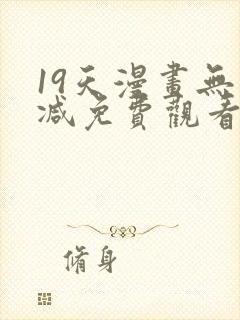 19天漫畫無
減免費觀看
脩身